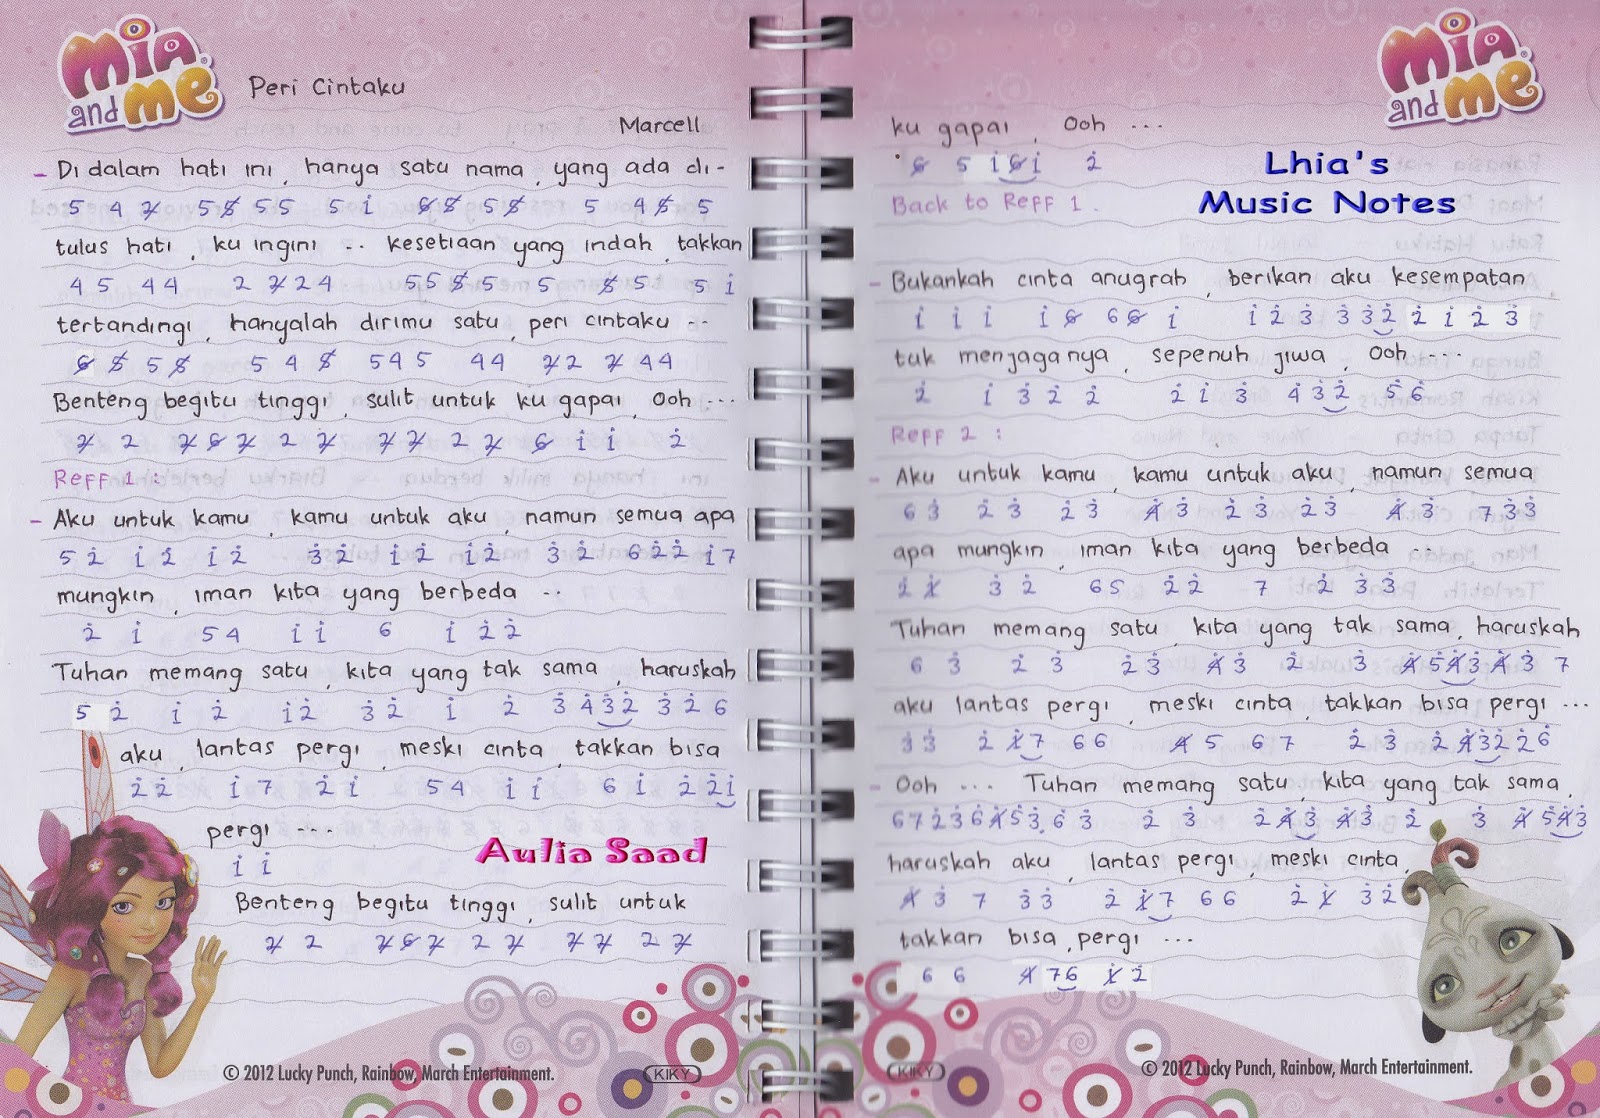 Mia and me
Peri Cintaku
Marcell
- Di dalam hati ini, hanya satu nama, yang ada di-
5 4 2̸ 5 5̸ 5 5 5 i 6̸ 5̸ 5 5̸ 5 4 5̸ 5
tulus hati, ku ingini .. kesetiaan yang indah, takkan
4 5 4 4 2 2̸ 2 4 5 5 5̸ 5 5 5̸ 5 5 i
tertandingi, hanyalah dirimu satu, peri cintaku ..
6̸ 5̸ 5 5̸ 5 4 5̸ 5 4 5 4 4 2̸ 2 2̸ 4 4
Benteng begitu tinggi, sulit untuk ku gapai, Ooh ...
2̸ 2 2̸ 6̸ 2̸ 2 2̸ 2̸ 2̸ 2 2̸ 6̸ i i 2̇
Reff 1 :
- Aku untuk kamu, kamu untuk aku, namun semua apa
5 2̇ i 2̇ i 2̇ 3̇ 2̇ i 2̇ i 2̇ 3̇ 2̇ 6 2̇ 2̇ i 7
mungkin, iman kita yang berbeda ..
2̇ i 5 4 i i 6 i 2̇ 2̇
Tuhan memang satu, kita yang tak sama, haruskah
5 2̇ i 2̇ i 2̇ 3̇ 2̇ i 2̇ 3̇ 4̇ 3̇ 2̇ 3̇ 2̇ 6
aku, lantas pergi, meski cinta, takkan bisa
2̇ 2̇ i 7 2̇ i 5 4 i i 6 i 2̇ 2̇ i
pergi ...
i i
Aulia Saad
Benteng begitu tinggi, sulit untuk
2̸ 2 2̸ 6̸ 2̸ 2 2̸ 2̸ 2̸ 2 2̸
© 2012 Lucky Punch, Rainbow, March Entertainment.
KIKY
Mia and me
ku gapai, Ooh ...
6̸ 5 i 6̸ i 2̇
Lhia's
Music Notes
Back to Reff 1.
- Bukankah cinta anugrah, berikan aku kesempatan
i i i i 6̸ 6 6̸ i i 2̇ 3̇ 3̇ 3̇ 2̇ 2̇ i 2̇ 3̇
tuk menjaganya, sepenuh jiwa, Ooh ...
2̇ i 3̇ 2̇ 2̇ 2̇ i 3̇ 4̇ 3̇ 2̇ 5̇ 6̇
Reff 2 :
- Aku untuk kamu, kamu untuk aku, namun semua
6 3̇ 2̇ 3̇ 2̇ 3̇ 4̸̇ 3̇ 2̇ 3̇ 2̇ 3̇ 4̸̇ 3̇ 7 3̇ 3̇
apa mungkin, iman kita yang berbeda ..
2̇ 1̸̇ 3̇ 2̇ 6 5 2̇ 2̇ 7 2̇ 3̇ 3̇
Tuhan memang satu, kita yang tak sama, haruskah
6 3̇ 2̇ 3̇ 2̇ 3̇ 4̸̇ 3̇ 2̇ 3̇ 4̸̇ 5̇ 4̸̇ 3̇ 4̸̇ 3̇ 7
aku lantas pergi, meski cinta, takkan bisa pergi ...
3̇ 3̇ 2̇ 1̸̇ 7 6 6 4̸ 5 6 7 2̇ 3̇ 2̇ 4̸̇ 3̇ 2̇ 2̇ 6̇
- Ooh ... Tuhan memang satu, kita yang tak sama,
6 7 2̇ 3̇ 6̇ 4̸̇ 5̇ 3̇, 6 3̇ 2̇ 3̇ 2̇ 4̸̇ 3̇ 4̸̇ 3̇ 2̇ 3̇ 4̸̇ 5̇ 4̸̇ 3̇
haruskah aku, lantas pergi, meski cinta,
4̸̇ 3̇ 7 3̇ 3̇ 2̇ 1̸̇ 7 6 6 2̇ 1̸̇ 3̇ 2̇
takkan bisa, pergi ...
6 6 4̸ 7 6 1̸̇ 2̇
KIKY
© 2012 Lucky Punch, Rainbow, March Entertainment.